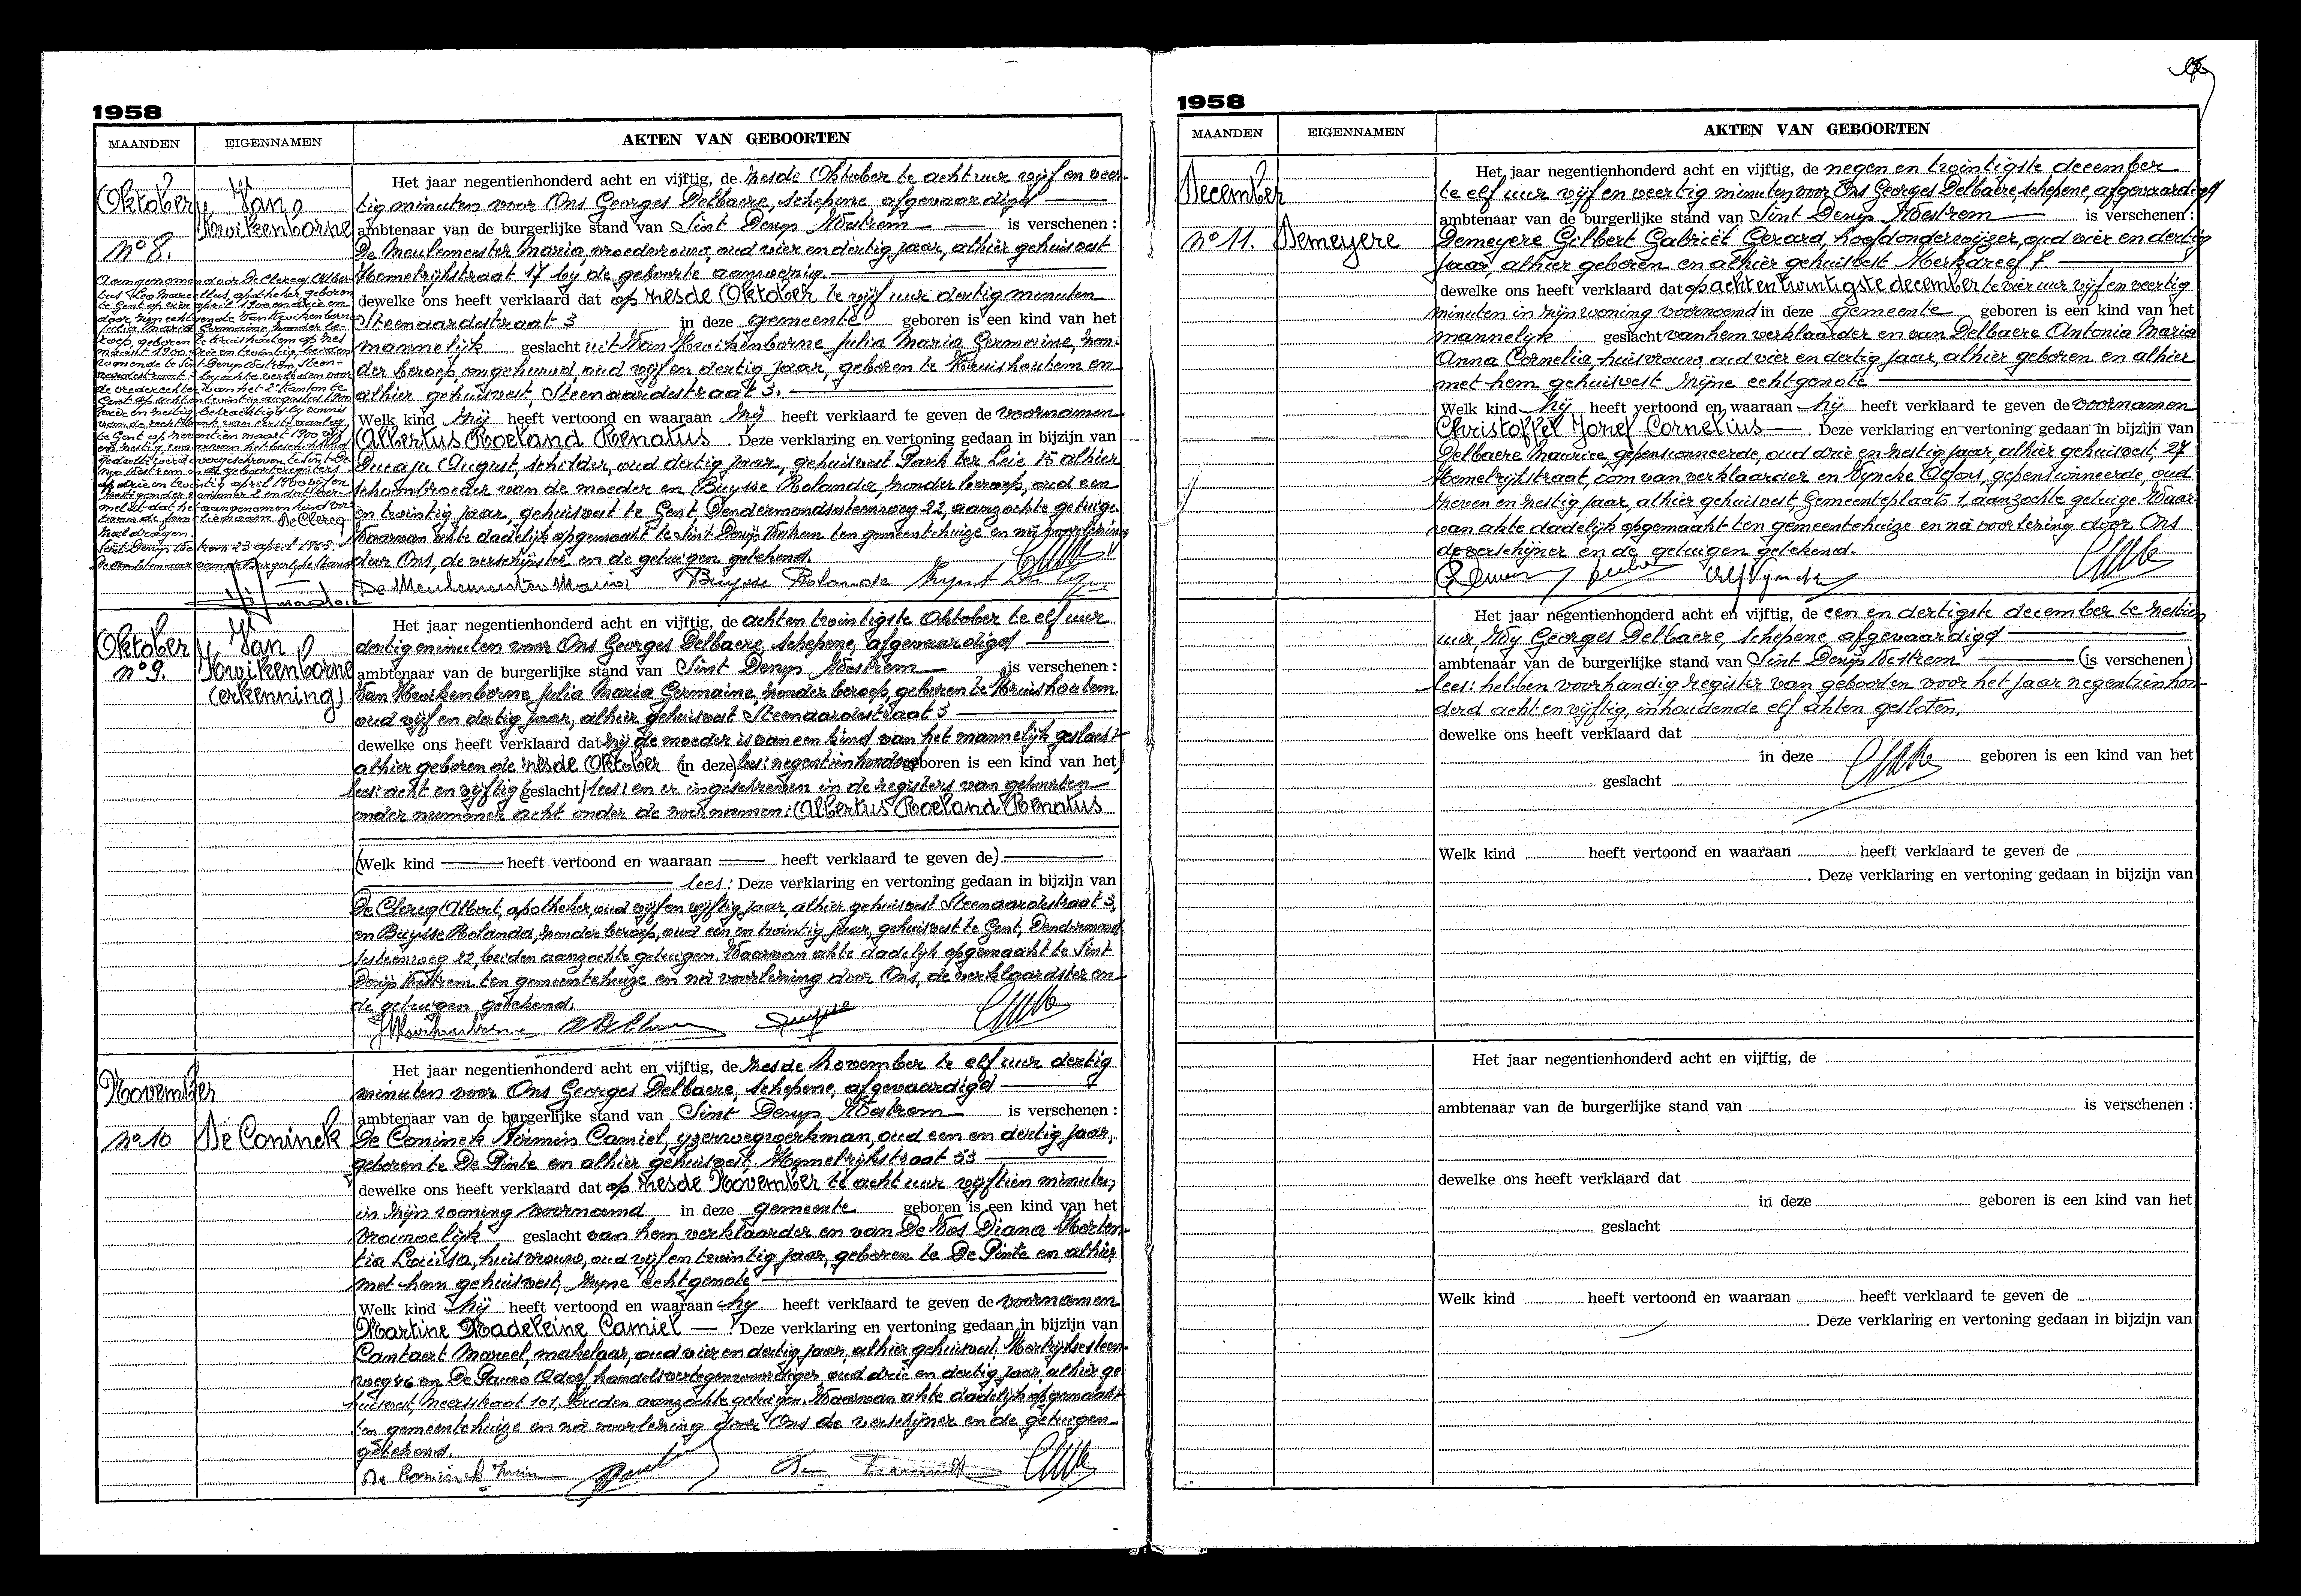 1958
MAANDEN EIGENNAMEN AKTEN VAN GEBOORTEN
Oktober
n° 8.
Van
Kwikenborne
Aangenomen door De Clercq Alber-
tus Leo Marcellus, apotheker, geboren
te Gent op vier april 1900 en drie en
door zijn echtgenote Van Kwikenborne
Julia Maria Germaine, zonder be-
roep, geboren te Kruishoutem op zes
maart 1900 drie en twintig, beiden
wonende te Sint Denijs Westrem, Steen-
aardestraat 3 bij akte verleden voor
de vrederechter van het 2e kanton te
Gent op acht en twintig augustus 1900
vier en zestig bekrachtigd bij vonnis
van de rechtbank van eerste aanleg
te Gent op negentien maart 1900 vijf
en zestig waarvan het beschikkend
gedeelte werd overgeschreven te Sint De-
nijs Westrem in de geboorteregisters
op drie en twintig april 1900 vijf en
zestig onder nummer 2 en dat ver-
meldt dat het aangenomen kind voor-
taan de familienaam De Clercq
zal dragen.
Sint Denijs Westrem 23 april 1965.
De Ambtenaar van de Burgerlijke Stand
Het jaar negentienhonderd acht en vijftig, de zesde Oktober te acht uur vijf en veer-
tig minuten voor Ons Georges Delbaere, schepene, afgevaardigd
ambtenaar van de burgerlijke stand van Sint Denijs Westrem is verschenen :
De Meulemeester Maria, vroedvrouw, oud vier en dertig jaar, alhier gehuisvest
Hemelrijkstraat 17 bij de geboorte aanwezig.
dewelke ons heeft verklaard dat op zesde Oktober te vijf uur dertig minuten
Steenaardestraat 3 in deze gemeente geboren is een kind van het
mannelijk geslacht uit Van Kwikenborne Julia Maria Germaine, zon-
der beroep, ongehuwd, oud vijf en dertig jaar, geboren te Kruishoutem en
alhier gehuisvest, Steenaardestraat 3.
Welk kind zij heeft vertoond en waaraan zij heeft verklaard te geven de voornamen
Albertus Roeland Renatus . Deze verklaring en vertoning gedaan in bijzijn van
Ducaju August, schilder, oud dertig jaar, gehuisvest Park ter Leie 15 alhier
schoonbroeder van de moeder en Buysse Rolanda, zonder beroep, oud een
en twintig jaar, gehuisvest te Gent, Dendermondsesteenweg 22, aangezochte getuige.
Waarvan akte dadelijk opgemaakt te Sint Denijs Westrem ten gemeentehuize en na voorlezing
door Ons, de verschijnster en de getuigen getekend.
De Meulemeester Maria Buysse Rolande
Oktober
n° 9.
Van
Kwikenborne
(erkenning)
Het jaar negentienhonderd acht en vijftig, de acht en twintigste Oktober te elf uur
dertig minuten voor Ons Georges Delbaere, schepene, afgevaardigd
ambtenaar van de burgerlijke stand van Sint Denijs Westrem is verschenen :
Van Kwikenborne Julia Maria Germaine, zonder beroep, geboren te Kruishoutem
oud vijf en dertig jaar, alhier gehuisvest Steenaardestraat 3
dewelke ons heeft verklaard dat zij de moeder is van een kind van het mannelijk geslacht
alhier geboren de zesde Oktober (in deze) lees: negentienhonderd geboren is een kind van het)
lees: acht en vijftig (geslacht) lees: en er ingeschreven in de registers van geboorten
onder nummer acht onder de voornamen: Albertus Roeland Renatus
(Welk kind heeft vertoond en waaraan heeft verklaard te geven de)
lees: Deze verklaring en vertoning gedaan in bijzijn van
De Clercq Albert, apotheker, oud vijf en vijftig jaar, alhier gehuisvest Steenaardestraat 3,
en Buysse Rolanda, zonder beroep, oud een en twintig jaar, gehuisvest te Gent, Dendermond-
sesteenweg 22, beiden aanzochte getuigen. Waarvan akte dadelijk opgemaakt te Sint
Denijs Westrem ten gemeentehuize en na voorlezing door Ons, de verklaardster en
de getuigen getekend.
November
n° 10
De Coninck
Het jaar negentienhonderd acht en vijftig, de zesde November te elf uur dertig
minuten voor Ons Georges Delbaere, schepene, afgevaardigd
ambtenaar van de burgerlijke stand van Sint Denijs Westrem is verschenen :
De Coninck Firmin Camiel, yzerwegwerkman, oud een en dertig jaar,
geboren te De Pinte en alhier gehuisvest, Hemelrijkstraat 53
dewelke ons heeft verklaard dat op zesde November te acht uur vijftien minuten,
in zijn woning voornoemd in deze gemeente geboren is een kind van het
vrouwelijk geslacht van hem verklaarder en van De Vos Diana Horten-
tia Louisa, huisvrouw, oud vijf en twintig jaar, geboren te De Pinte en alhier
met hem gehuisvest, zijne echtgenote
Welk kind hij heeft vertoond en waaraan hij heeft verklaard te geven de voornamen
Martine Madeleine Camiel . Deze verklaring en vertoning gedaan in bijzijn van
Cantaert Marcel, makelaar, oud vier en dertig jaar, alhier gehuisvest, Kortrijksesteen-
weg 46 en De Pauw Adolf, handelsvertegenwoordiger, oud drie en dertig jaar, alhier ge-
huisvest, Meersstraat 101, beiden aanzochte getuigen. Waarvan akte dadelijk opgemaakt
ten gemeentehuize en na voorlezing door Ons de verschijner en de getuigen
getekend.
De Coninck Firmin
1958
MAANDEN EIGENNAMEN AKTEN VAN GEBOORTEN
December
n° 11.
Demeyere
Het jaar negentienhonderd acht en vijftig, de negen en twintigste december
te elf uur vijf en veertig minuten voor Ons Georges Delbaere, schepene, afgevaardigd
ambtenaar van de burgerlijke stand van Sint Denijs Westrem is verschenen :
Demeyere Gilbert Gabriël Gerard, hoofdonderwijzer, oud vier en dertig
jaar, alhier geboren en alhier gehuisvest Kerkdreef 7.
dewelke ons heeft verklaard dat op acht en twintigste december te vier uur vijf en veertig
minuten in zijn woning voornoemd in deze gemeente geboren is een kind van het
mannelijk geslacht van hem verklaarder en van Delbaere Antonia Maria
Anna Cornelia, huisvrouw, oud vier en dertig jaar, alhier geboren en alhier
met hem gehuisvest zijne echtgenote
Welk kind hij heeft vertoond en waaraan hij heeft verklaard te geven de voornamen
Christoffel Jozef Cornelius . Deze verklaring en vertoning gedaan in bijzijn van
Delbaere Maurice, gepensionneerde, oud drie en zestig jaar, alhier gehuisvest, 27
Hemelrijkstraat, oom van verklaarder en Vyncke Alfons, gepensionneerde, oud
zeven en zestig jaar, alhier gehuisvest, Gemeenteplaats 1, aanzochte getuige. Waar-
van akte dadelijk opgemaakt ten gemeentehuize en na voorlezing door Ons
de verschijner en de getuigen getekend.
Het jaar negentienhonderd acht en vijftig, de een en dertigste december te zestien
uur, Wij Georges Delbaere, schepene afgevaardigd
ambtenaar van de burgerlijke stand van Sint Denijs Westrem (is verschenen)
lees: hebben voorhandig register van geboorten voor het jaar negentienhon-
derd acht en vijftig, inhoudende elf akten gesloten.
dewelke ons heeft verklaard dat
in deze geboren is een kind van het
geslacht
Welk kind heeft vertoond en waaraan heeft verklaard te geven de
. Deze verklaring en vertoning gedaan in bijzijn van
Het jaar negentienhonderd acht en vijftig, de
ambtenaar van de burgerlijke stand van is verschenen :
dewelke ons heeft verklaard dat
in deze geboren is een kind van het
geslacht
Welk kind heeft vertoond en waaraan heeft verklaard te geven de
. Deze verklaring en vertoning gedaan in bijzijn van